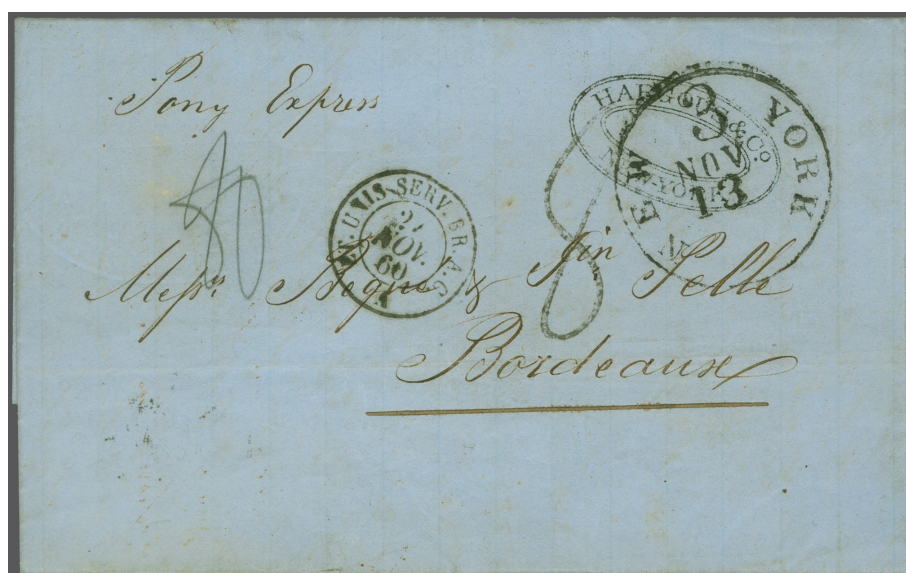 Pony Express
HARGOUS & Co
NEW-YORK
NEW YORK
3
NOV
13
ET. UNIS SERV. BR. A.C.
NOV.
60
8
Messrs & Jin Pelle
Bordeaux